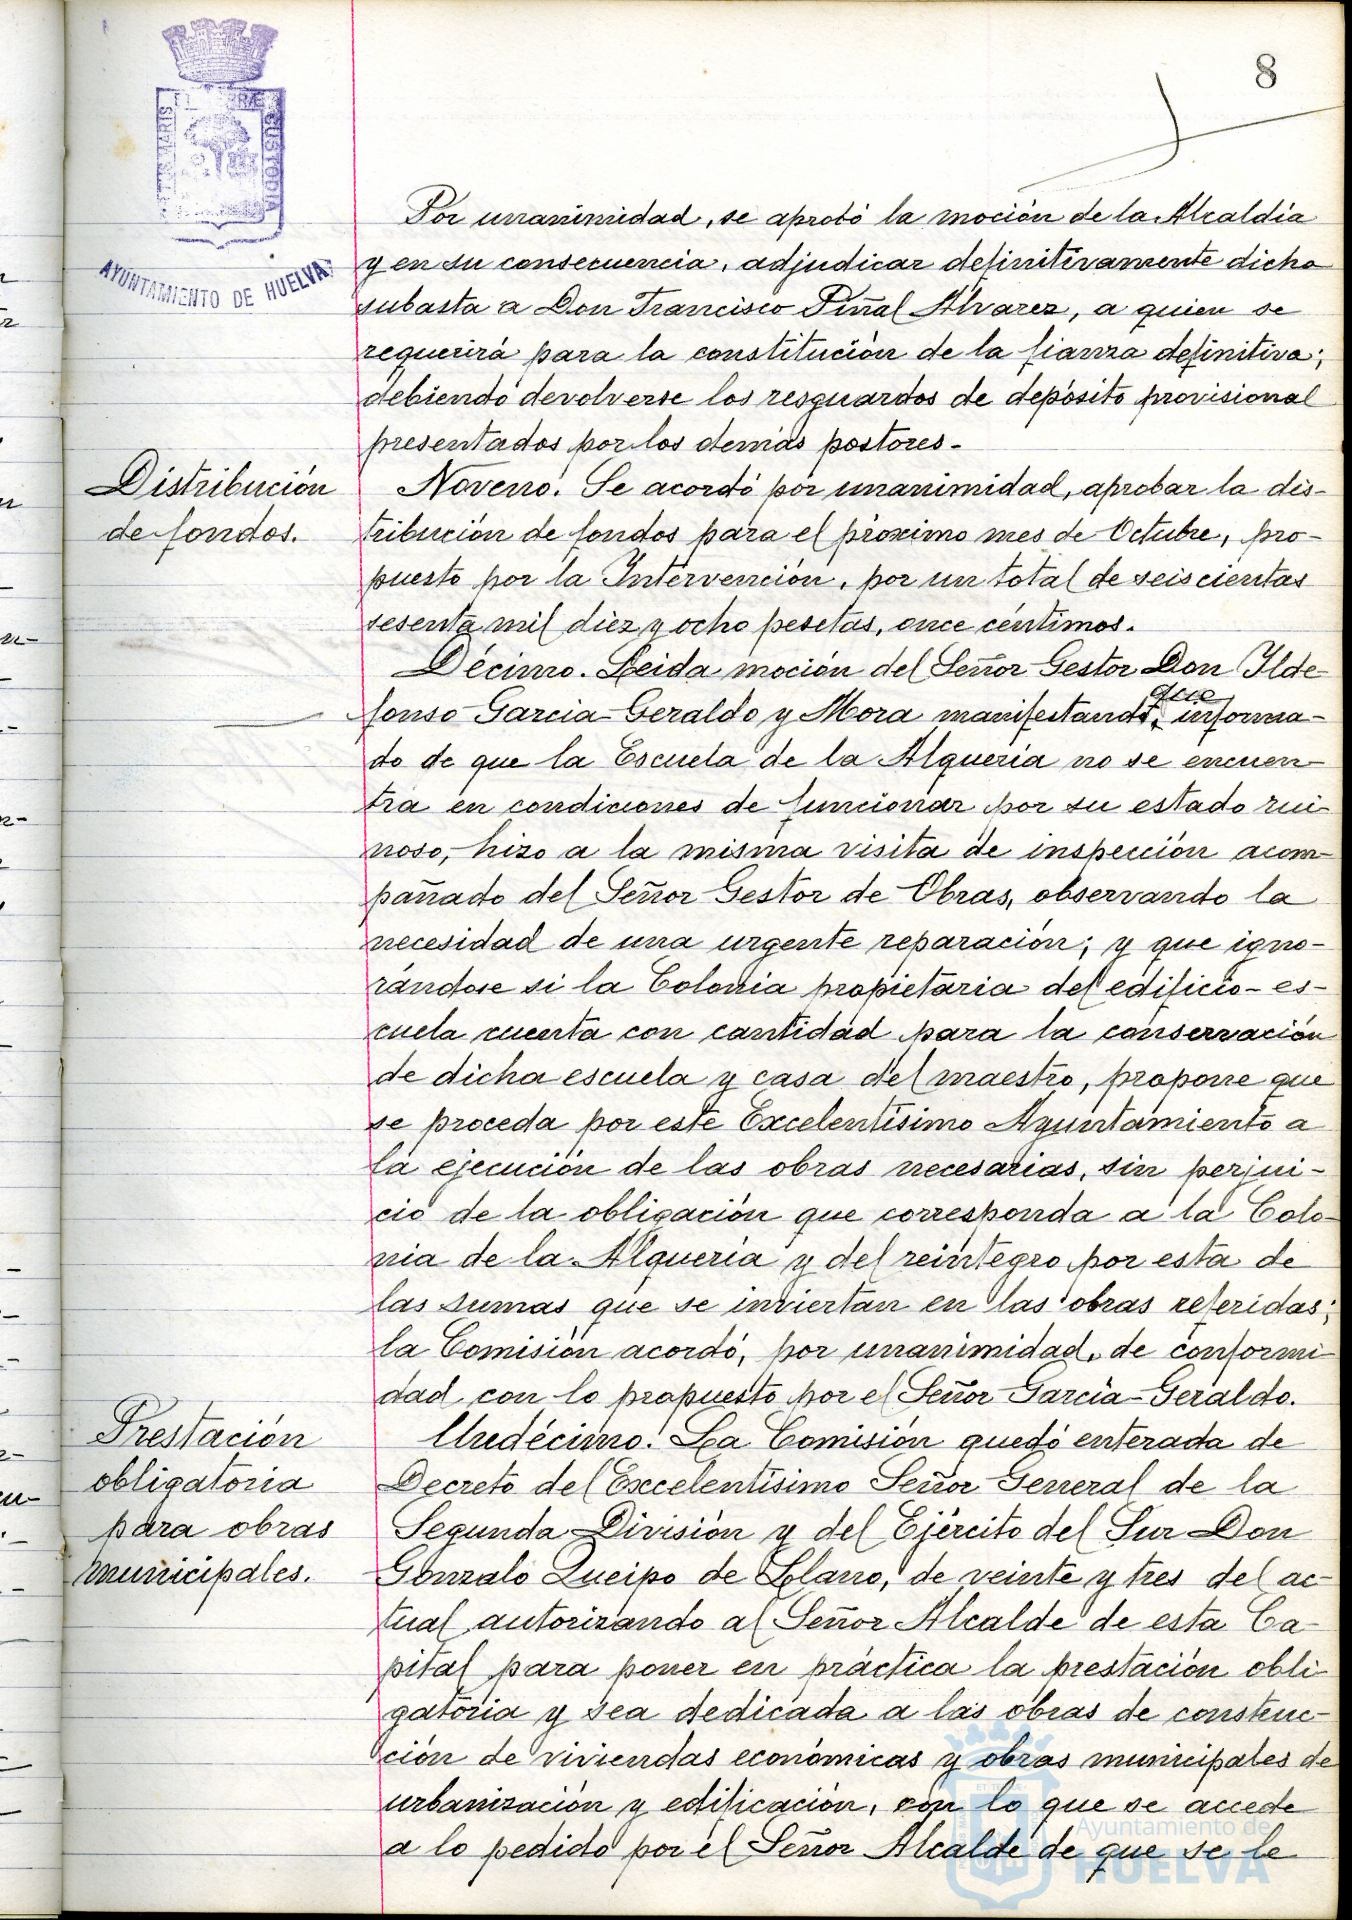 8
PORTUS MARIS ET TERRÆ CUSTODIA
AYUNTAMIENTO DE HUELVA
Por unanimidad, se aprobó la moción de la Alcaldía
y en su consecuencia, adjudicar definitivamente dicha
subasta a Don Francisco Piñal Álvarez, a quien se
requerirá para la constitución de la fianza definitiva;
debiendo devolverse los resguardos de depósito provisional
presentados por los demás postores.-
Distribución
de fondos.
Noveno. Se acordó por unanimidad, aprobar la dis-
tribución de fondos para el próximo mes de Octubre, pro-
puesto por la Intervención, por un total de seiscientas
sesenta mil diez y ocho pesetas, once céntimos.
Décimo. Leida moción del Señor Gestor Don Ilde-
fonso Garcia-Geraldo y Mora manifestando, que informa-
do de que la Escuela de la Alquería no se encuen-
tra en condiciones de funcionar por su estado rui-
noso, hizo a la misma visita de inspección acom-
pañado del Señor Gestor de Obras, observando la
necesidad de una urgente reparación; y que igno-
rándose si la Colonia propietaria del edificio-es-
cuela cuenta con cantidad para la conservación
de dicha escuela y casa del maestro, propone que
se proceda por este Excelentísimo Ayuntamiento a
la ejecución de las obras necesarias, sin perjui-
cio de la obligación que corresponda a la Colo-
nia de la Alquería y del reintegro por esta de
las sumas que se inviertan en las obras referidas;
la Comisión acordó, por unanimidad, de conformi-
dad con lo propuesto por el Señor García-Geraldo.
Prestación
obligatoria
para obras
municipales.
Undécimo. La Comisión quedó enterada de
Decreto del Excelentísimo Señor General de la
Segunda División y del Ejército del Sur Don
Gonzalo Queipo de Llano, de veinte y tres del ac-
tual autorizando al Señor Alcalde de esta Ca-
pital para poner en práctica la prestación obli-
gatoria y sea dedicada a las obras de construc-
ción de viviendas económicas y obras municipales de
urbanización y edificación, con lo que se accede
a lo pedido por el Señor Alcalde de que se le
Ayuntamiento de
HUELVA